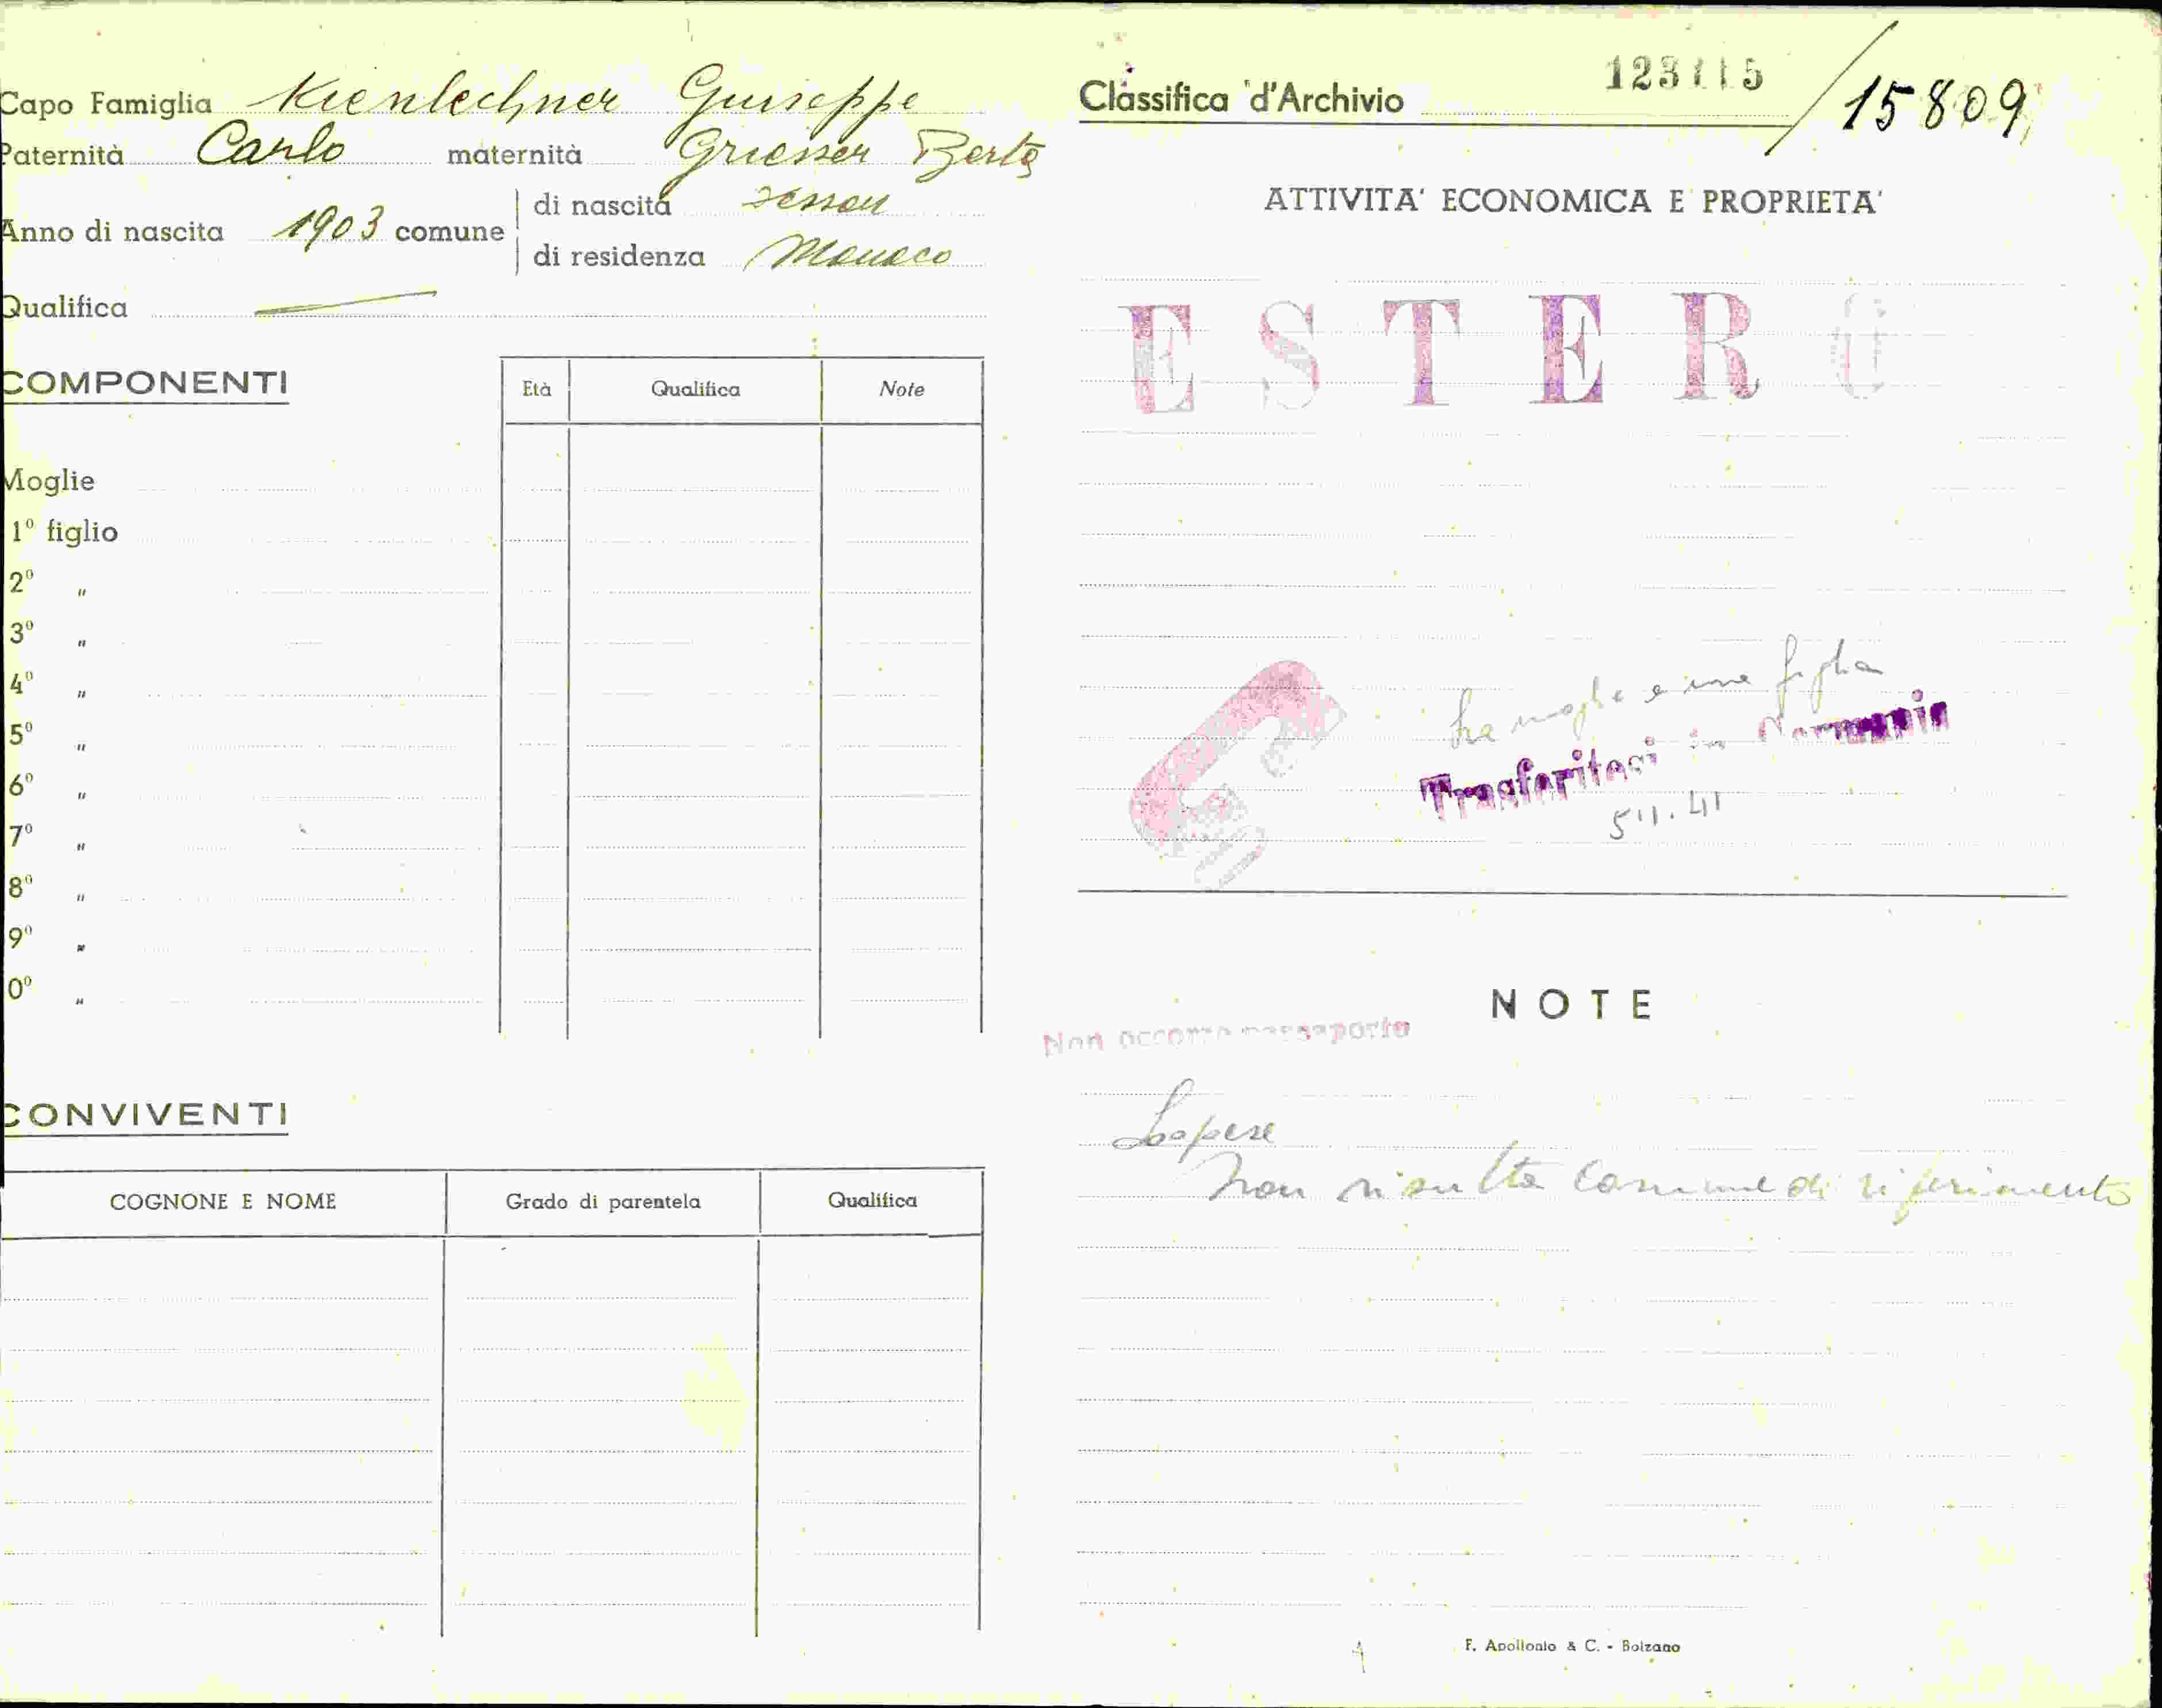 Capo Famiglia Kienlechner Giuseppe
Paternità Carlo maternità Griesser Berta
Anno di nascita 1903 comune
di nascita
di residenza Monaco
Qualifica
COMPONENTI
Età Qualifica Note
Moglie
1º figlio
2º "
3º "
4º "
5º "
6º "
7º "
8º "
9º "
0º "
CONVIVENTI
COGNONE E NOME Grado di parentela Qualifica
Classifica d'Archivio 123115 / 15809
ATTIVITA' ECONOMICA E PROPRIETA'
ESTERO
la moglie e una figlia
Trasferitosi in Germania
5 11. 41
NOTE
Non occorre passaporto
non risulta comune di riferimento
F. Apollonio & C. - Bolzano